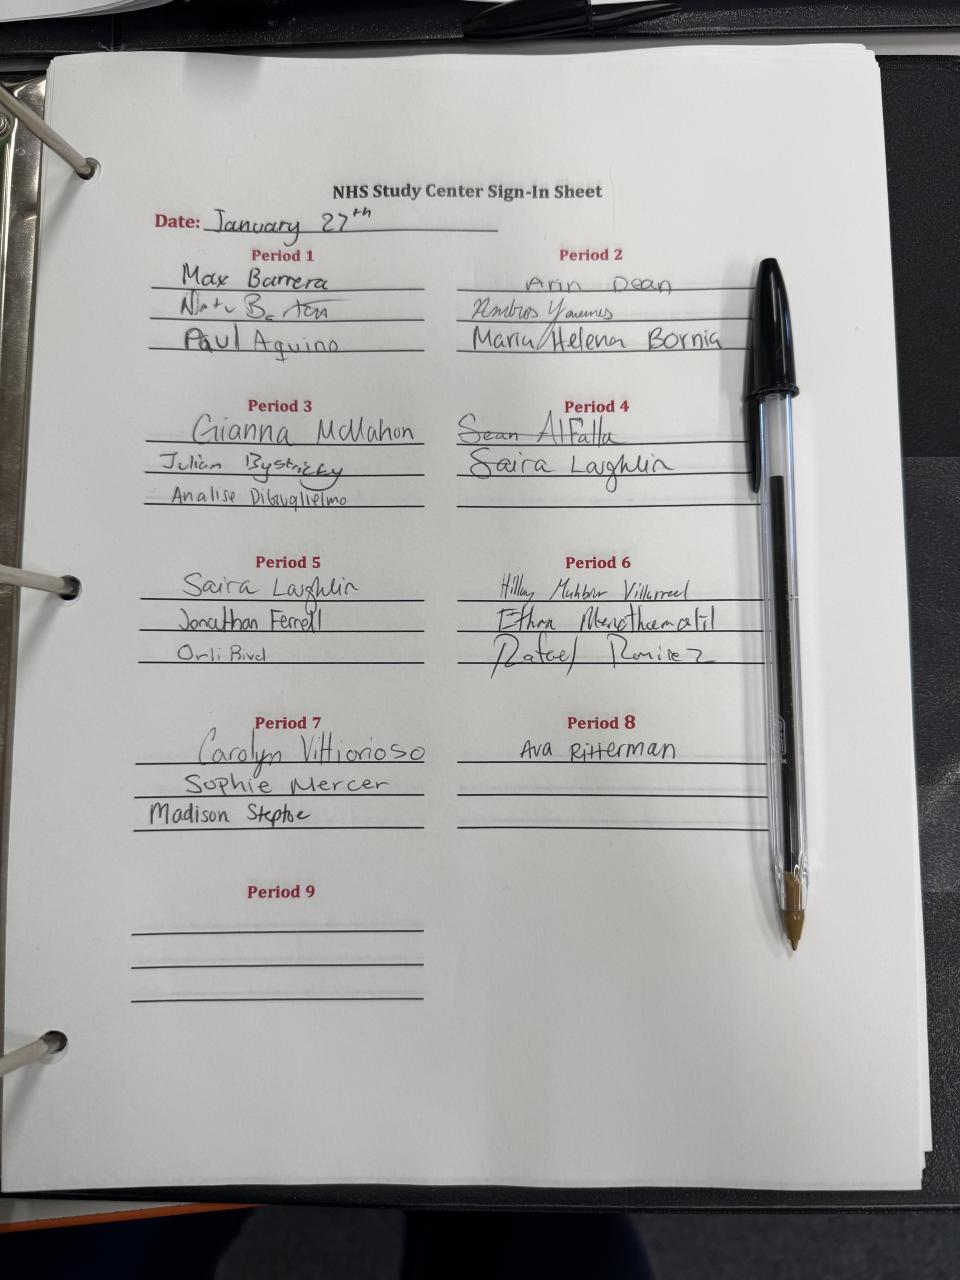 NHS Study Center Sign-In Sheet
Date: January 27th
Period 1
Max Barrera
Paul Aquino
Period 2
Arin Dean
Maria/Helena Bornia
Period 3
Gianna McMahon
Julian Bystricky
Analise DiGuglielmo
Period 4
Sean AlFalla
Saira Laughlin
Period 5
Saira Laughlin
Jonathan Ferrell
Orli
Period 6
Villarreal
Ethan
Rafael Ramirez
Period 7
Carolyn Vittiorioso
Sophie Mercer
Madison Steptoe
Period 8
Ava Ritterman
Period 9